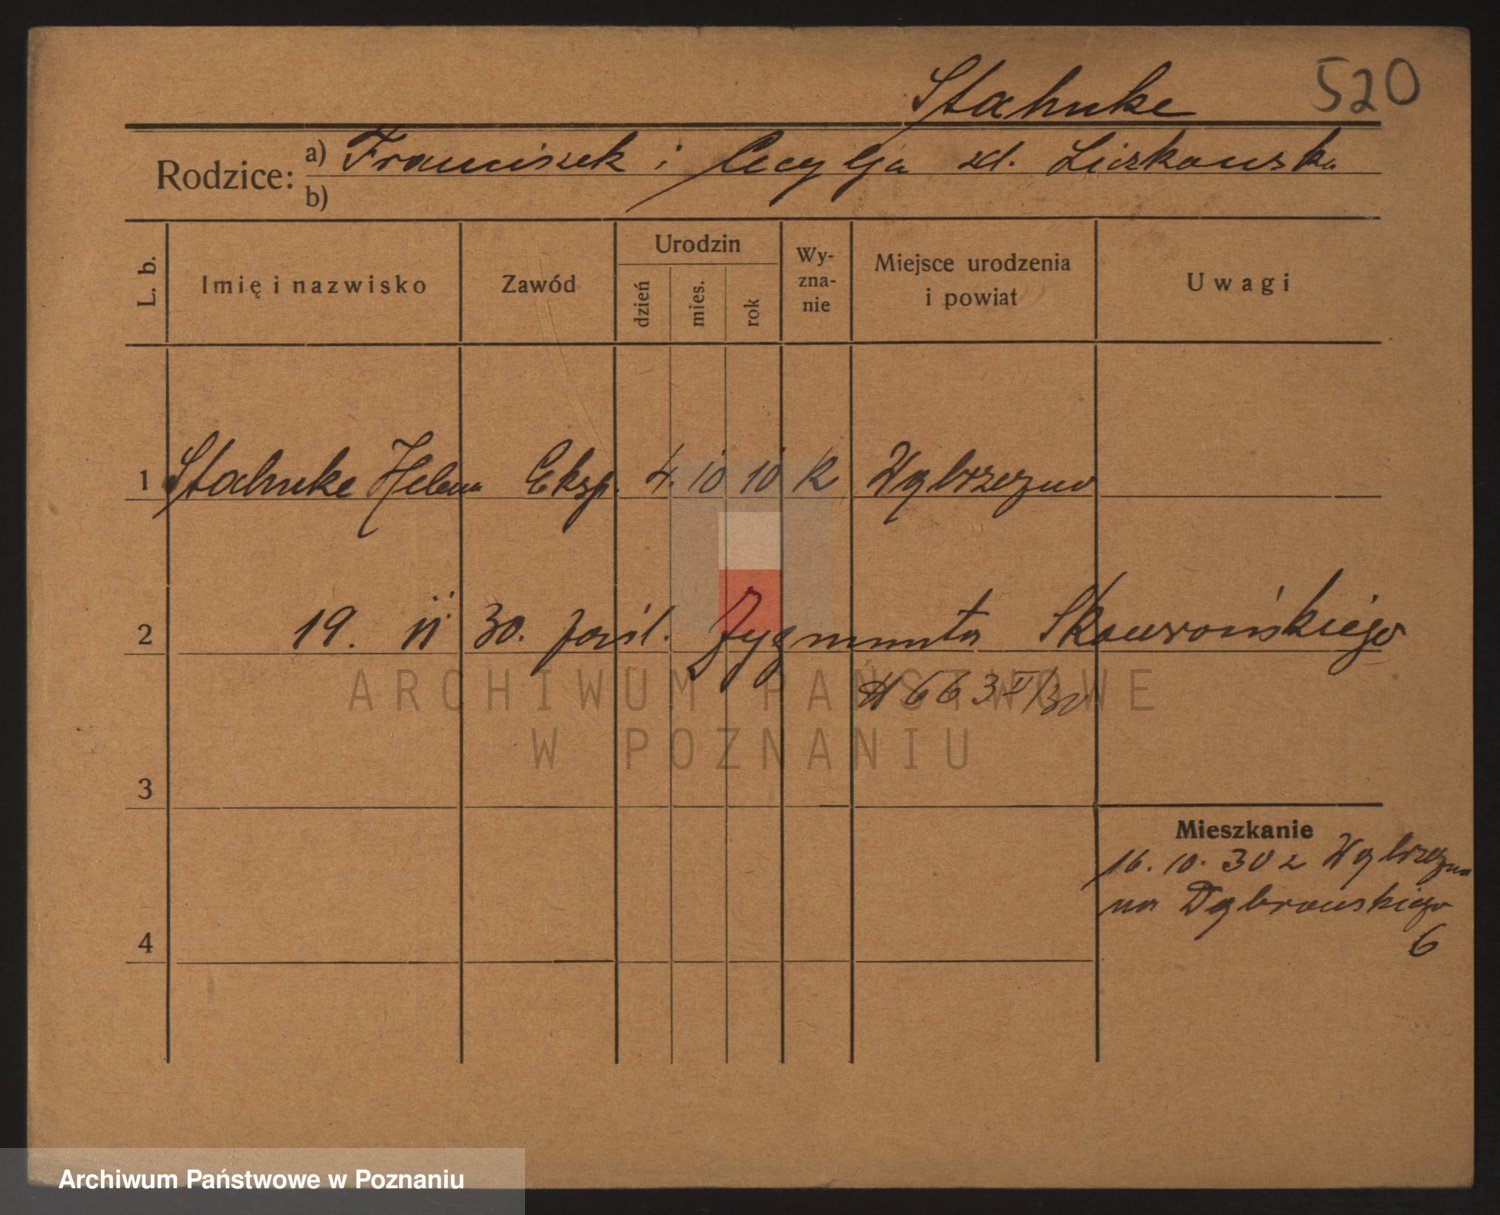 Stahnke 520
Rodzice: a) Franciszek i Cecylja zd. Liszkowska
b)
L. b. Imię i nazwisko Zawód Urodzin dzień mies. rok Wy-zna-nie Miejsce urodzenia i powiat Uwagi
1 Stahnke Helena Eksp. 4. 10 10 k Wąbrzeźno
2 19. 11 30. pośl. Zygmunta Skowrońskiego
663 II/30
ARCHIWUM PAŃSTWOWE
W POZNANIU
3
Mieszkanie
16. 10. 30 z Wąbrzeźna
na Dąbrowskiego
6
4
Archiwum Państwowe w Poznaniu